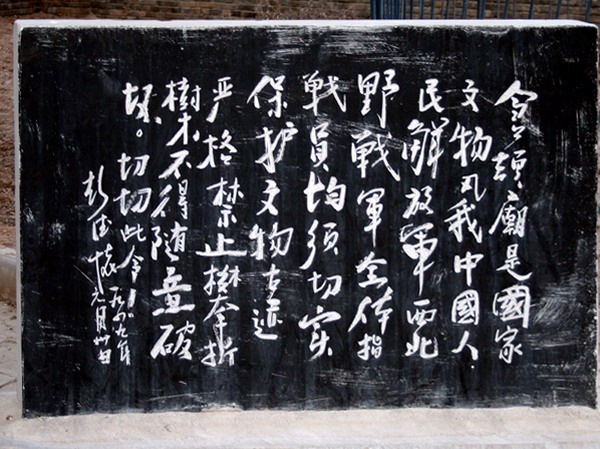 仓頡廟是國家
文物凡我中國人
民解放軍西北
野戰軍全体指
戰員均須切实
保护文物古迹
严格禁止攀折
樹木不得随意破
坏。切切此令！
彭德怀
一九四九年
月卅日